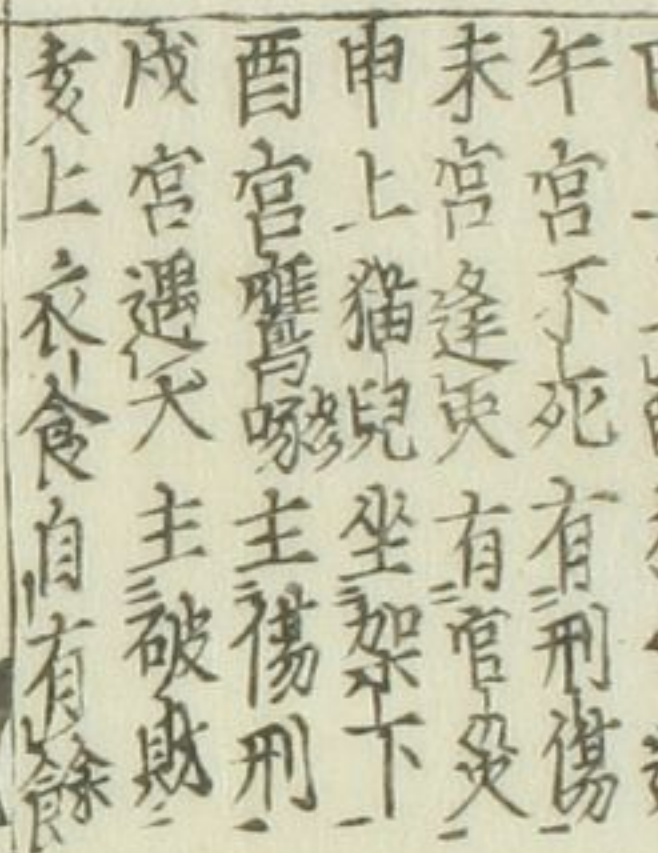 午宮不死有刑傷
未宮逢䖝有官災
申上猫兒坐架下
酉宮鷹啄主傷刑
戌宮遇犬主破財
亥上衣食自有餘